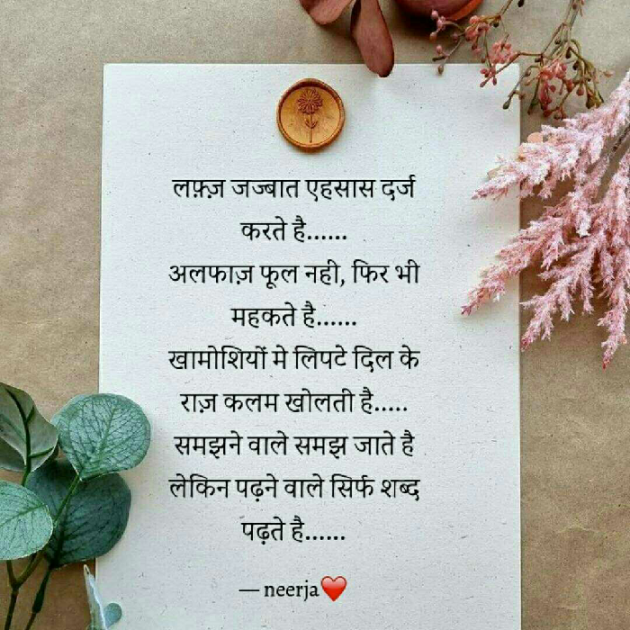 लफ़्ज़ जज्बात एहसास दर्ज
करते है......
अलफाज़ फूल नही, फिर भी
महकते है......
खामोशियों मे लिपटे दिल के
राज़ कलम खोलती है.....
समझने वाले समझ जाते है
लेकिन पढ़ने वाले सिर्फ शब्द
पढ़ते है......
— neerja❤️